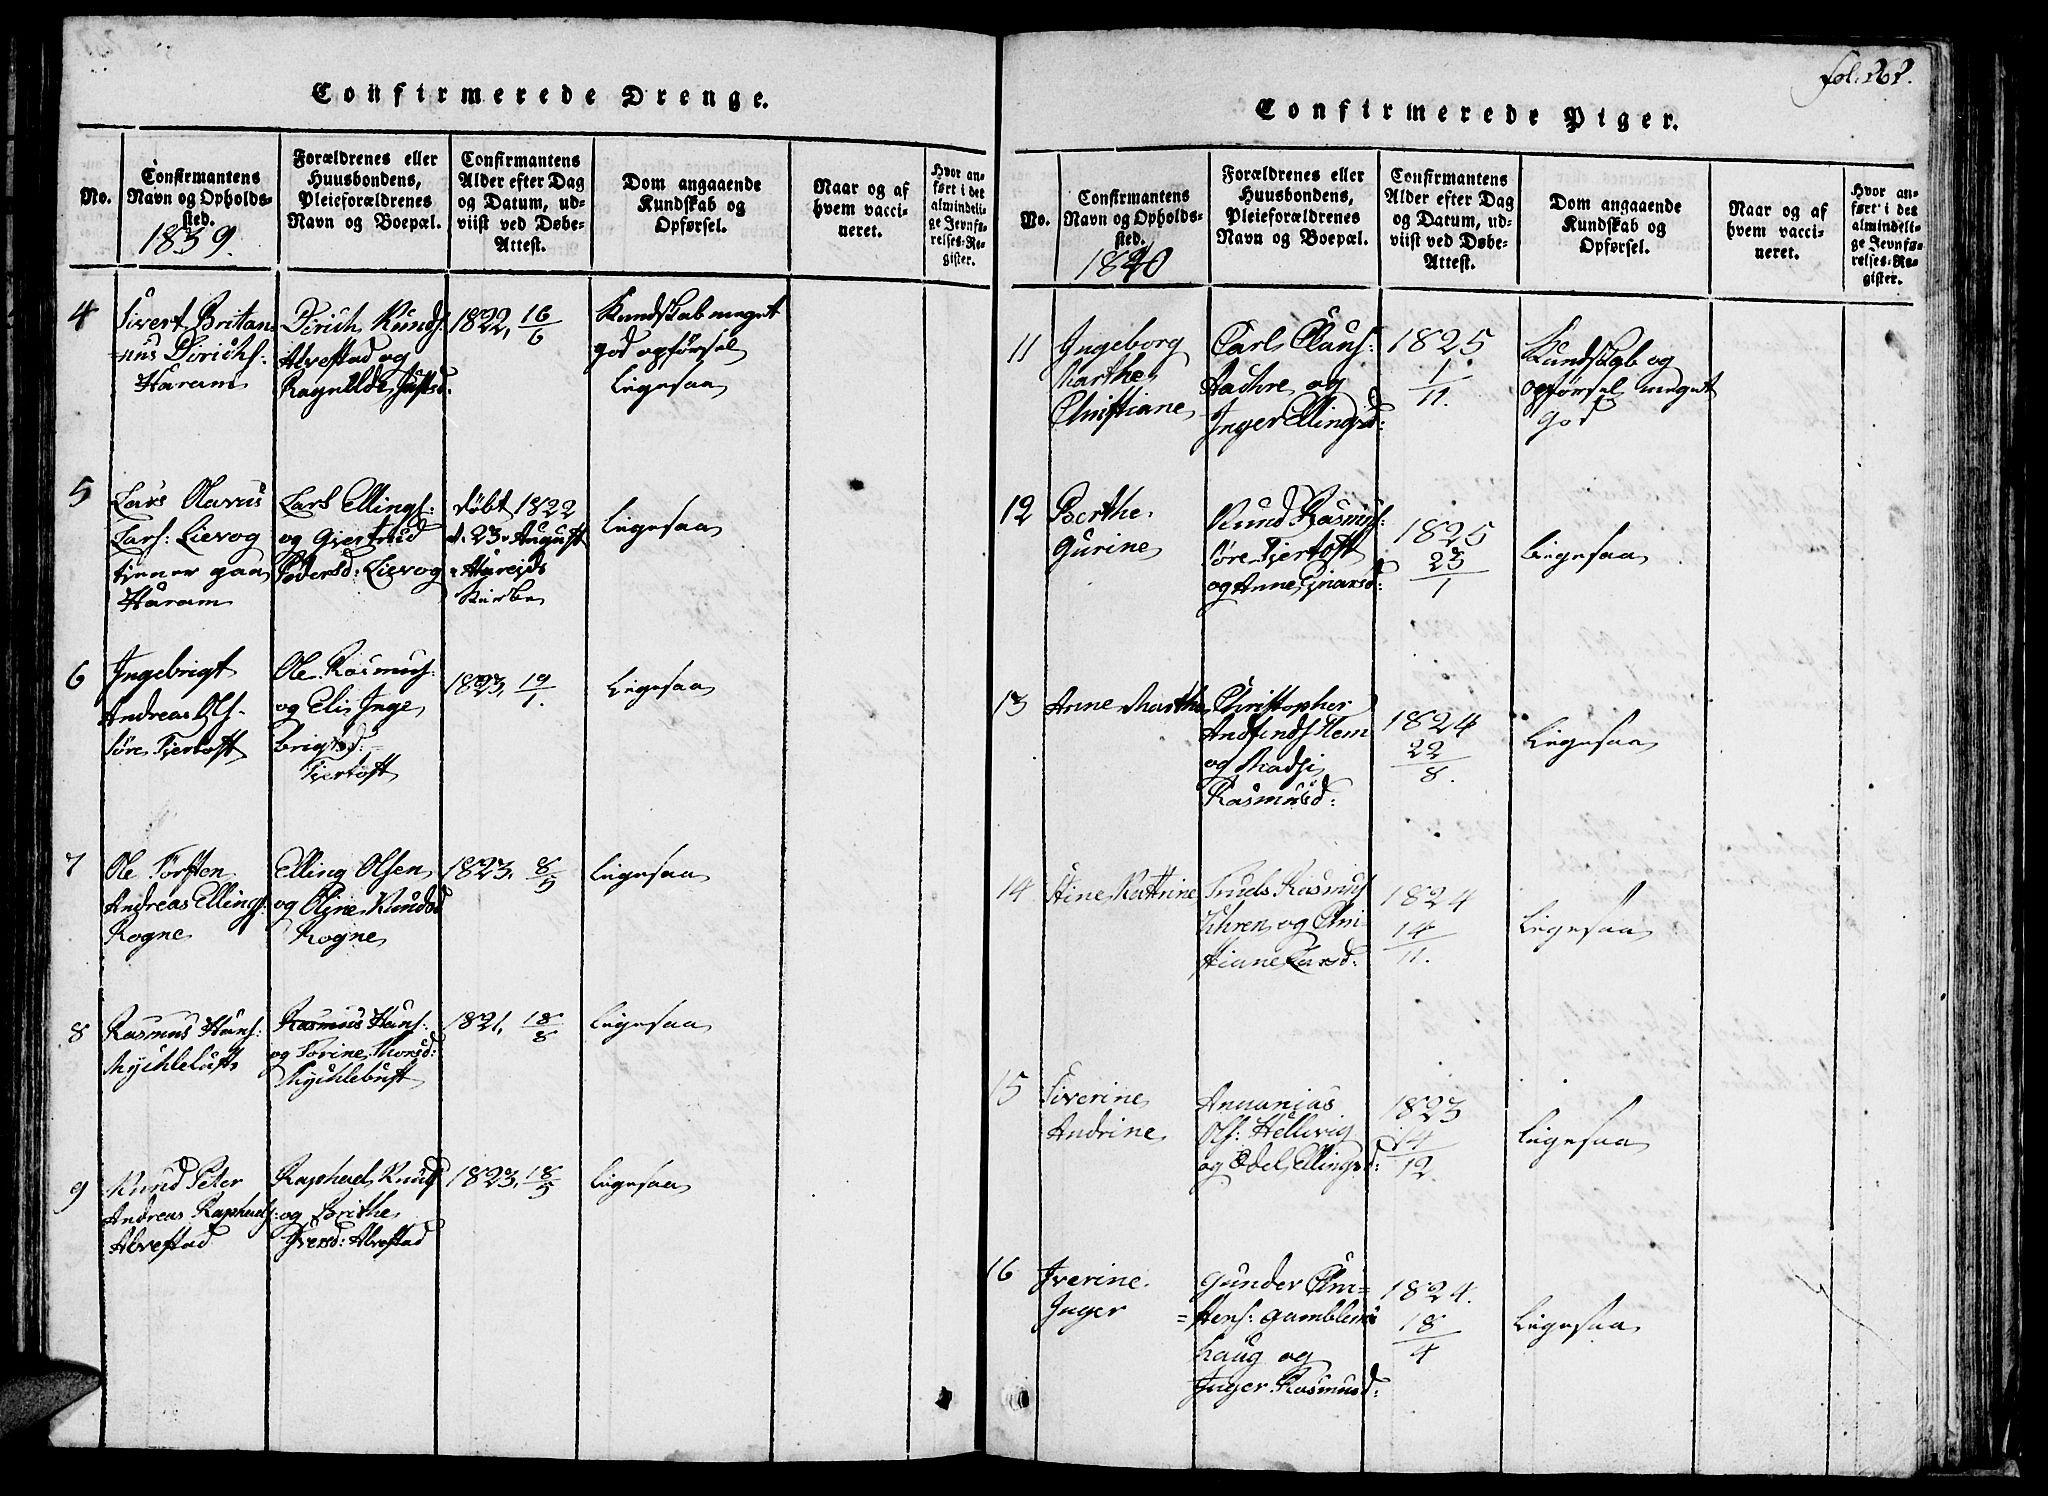 Confirmerede Drenge.
No.
Confirmantens
Navn og Opholds-
sted.
1839.
Forældrenes eller
Huusbondens,
Pleieforældrenes
Navn og Boepæl.
Confirmantens
Alder efter Dag
og Datum, ud-
viist ved Døbe-
Attest.
Dom angaaende
Kundskab og
Opførsel.
Naar og af
hvem vacci-
neret.
Hvor an-
ført i det
almindeli-
ge Jevnfø-
relses-Re-
gister.
4
Sivert Britan
=nus Dirichs:
Haram
Dirich Knuds:
Alvestad og
1822, 16/6
Kundskab meget
god opførsel
Ligesaa
5
Lars Olavus
Lars: Lievog
tjener paa
Haram
Lars Ellings:
og Giertrud
Pedersd: Lievog
døbt 1822
d. 23. August
Kirke
Ligesaa
6
Ingebrigt
Andreas Ols.
Søre Fiertoft
Ole Rasmus:
og Elis Inge
brigtsd:
Fiertoft
1823, 19/1.
Ligesaa
7
Ole Torsten
Andreas Ellings:
Rogne
Elling Olsen
og Oline Knudsd
Rogne
1823. 8/5
Ligesaa
8
Rasmus Hans:
Mychlebust
Rasmus Hans:
og Torine Monsd:
Mychlebust
1821, 18/8
Ligesaa
9
Knud Peter
Andreas Raphaels:
Alvestad
Raphael Knuds
og Brithe
Iversd: Alvestad
1823, 18/5
Ligesaa
fol. 262.
Confirmerede Piger.
No.
Confirmantens
Navn og Opholds-
sted.
1840
Forældrenes eller
Huusbondens,
Pleieforældrenes
Navn og Boepæl.
Confirmantens
Alder efter Dag
og Datum, ud-
viist ved Døbe-
Attest.
Dom angaaende
Kundskab og
Opførsel.
Naar og af
hvem vacci-
neret.
Hvor an-
ført i det
almindeli-
ge Jevnfø-
relses-Re-
gister.
11
Ingeborg
Marthe
Christiane
Carl Claus:
Aachre og
Inger Ellingsd:
1825
1/11.
Kundskab og
opførsel meget
god
12
Berthe
Gurine
Knud Rasmus:
Søre Fiertoft
og Anne Einarsd:
1825
23/1
Ligesaa
13
Anne Marthe
Christopher
Andfinds Hem
og Madsi
Rasmusd:
1824
22/8.
Ligesaa
14
Stine Kathrine
Truels Rasmus
Uhren og Chri
stiane Larsd:
1824
14/11.
Ligesaa
15
Siverine
Andrine
Annanias
Ols: Hellevig
og Edel Ellingsd:
1823
14/12.
Ligesaa
16
Iverine
Inger
Gunder Chri=
=stens: Gamblem
houg og
Inger Rasmusd:
1824.
18/4
Ligesaa